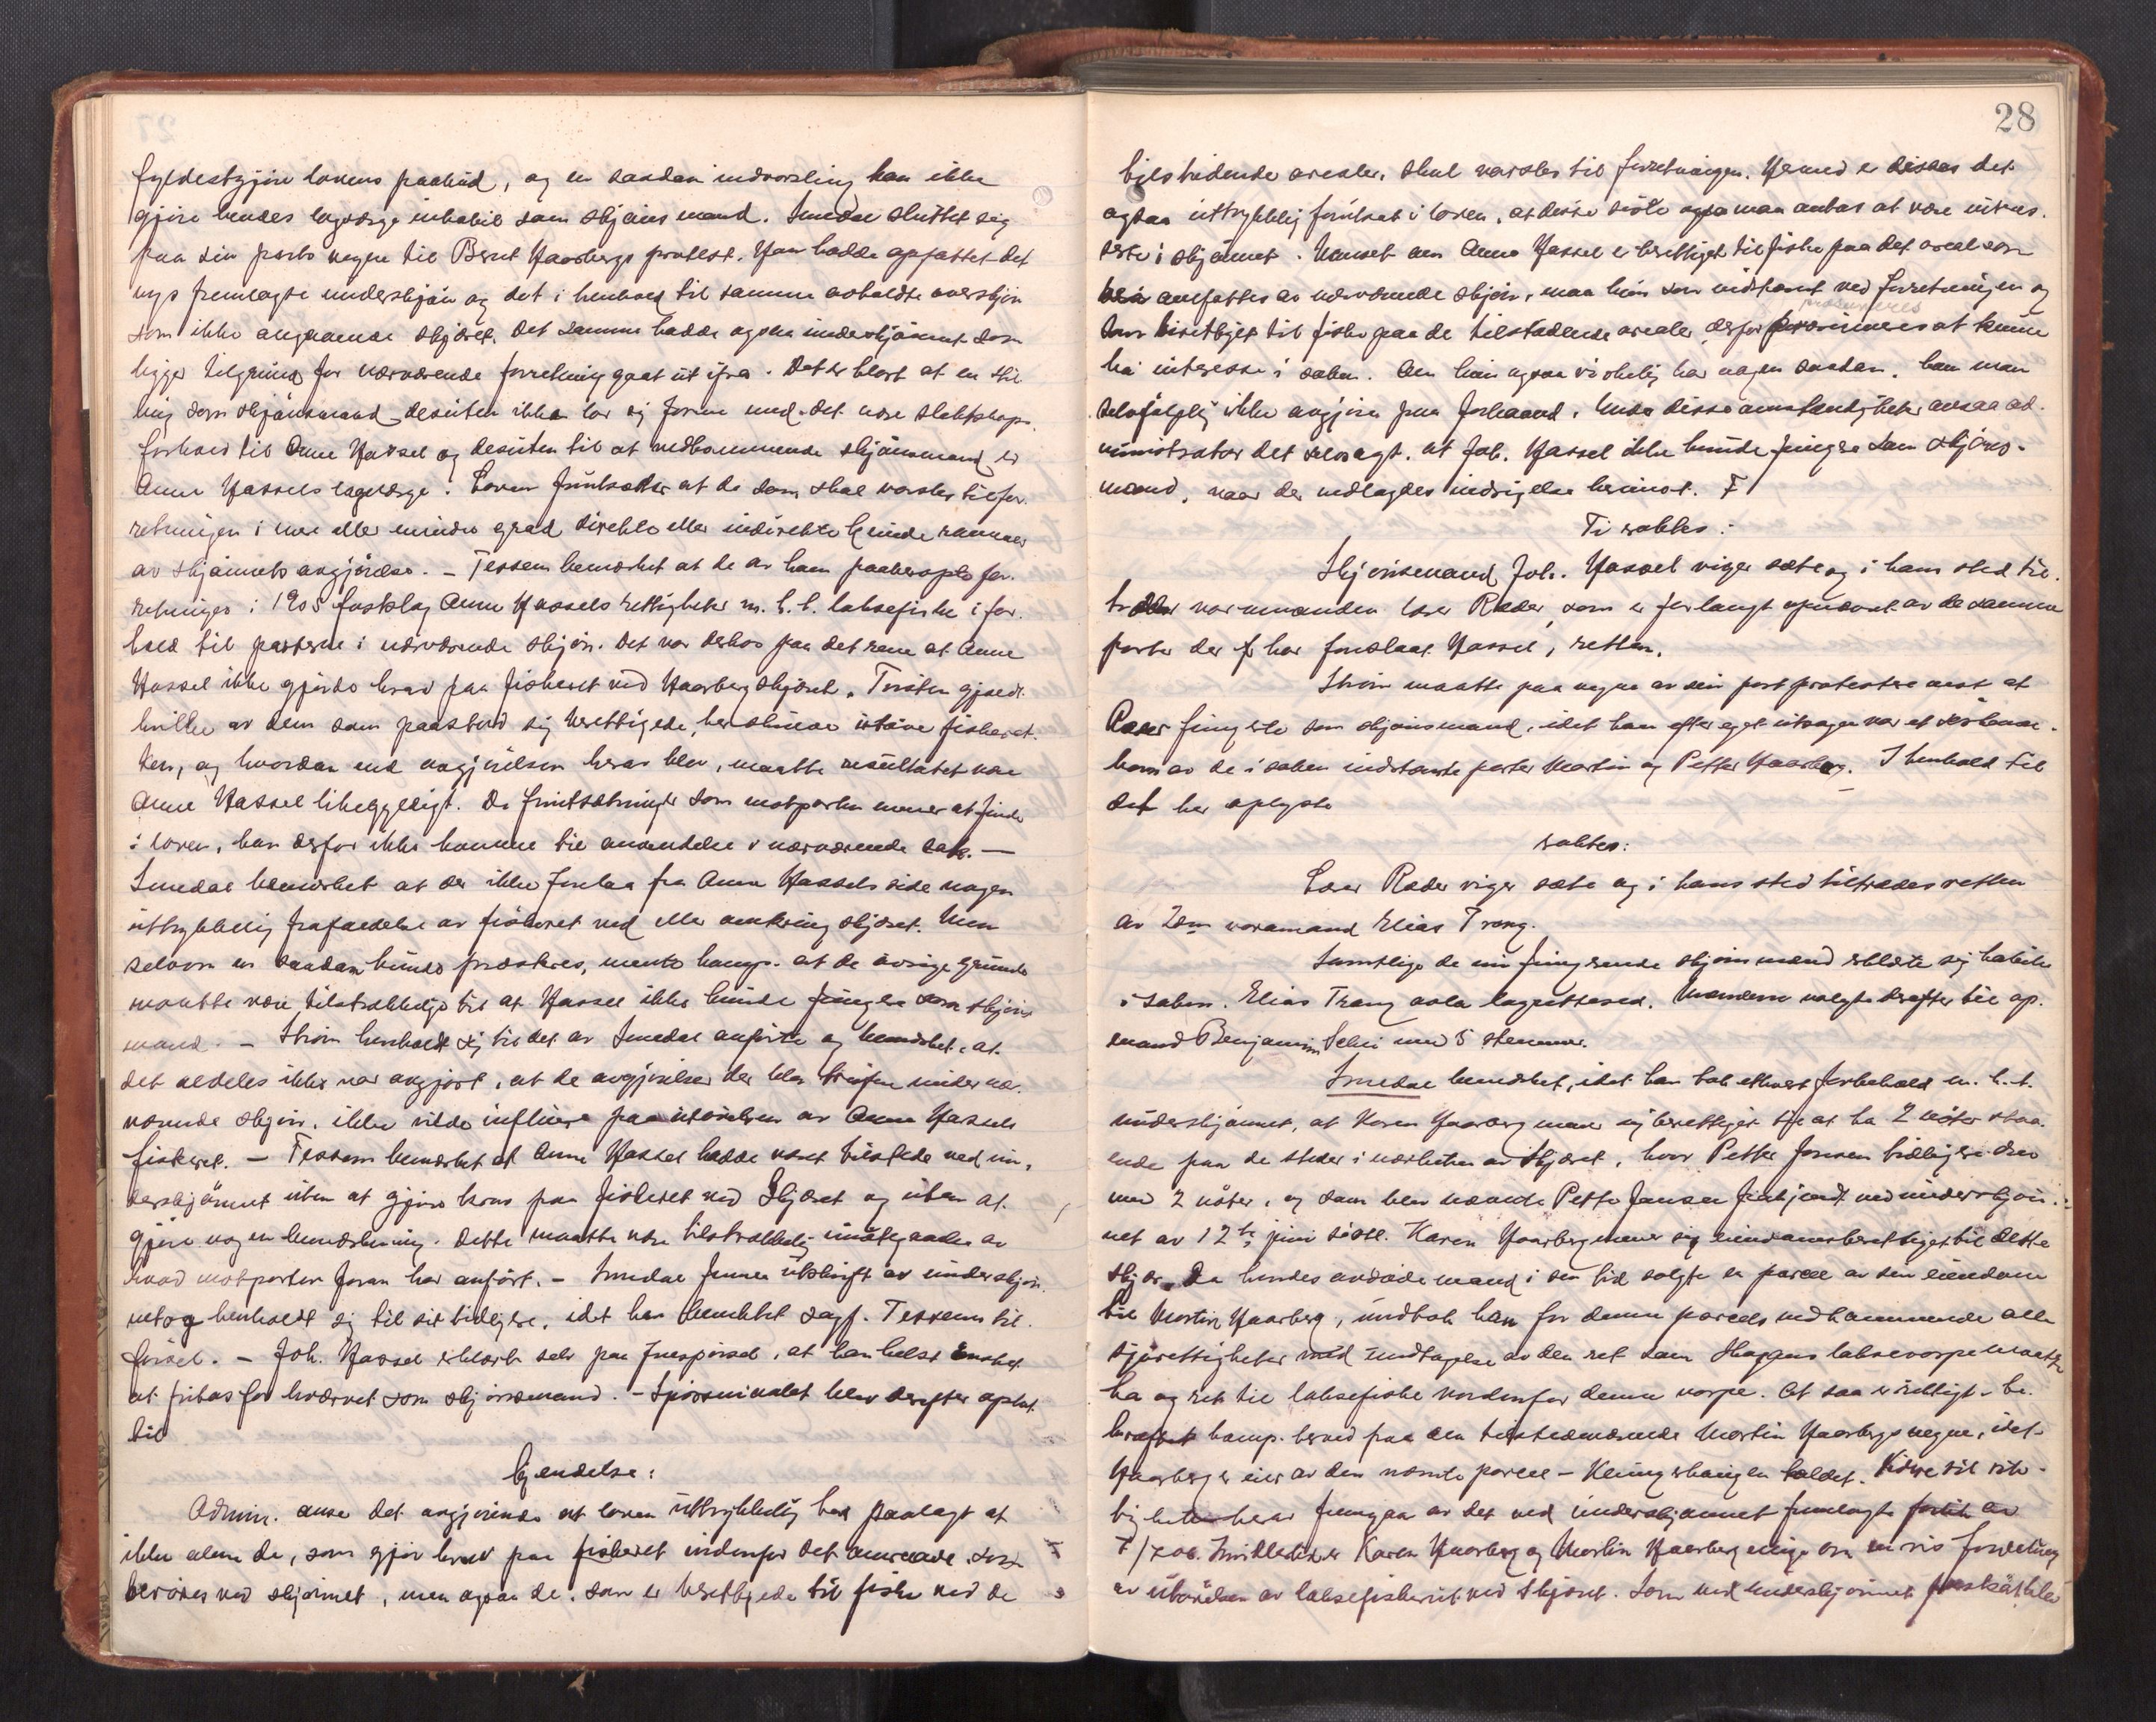 fyldestgjøre lovens paabud, og en saadan indvarsling kan ikke
gjøre hendes lagværge inhabil som skjønsmand. Smedal sluttet sig
paa sin parts vegne til Bernt Haarbergs protest. Han hadde opfattet det
nys fremlagte underskjøn og det i henhold til samme avholdte overskjøn
som ikke angaaende skjæret. Det samme hadde ogsaa underskjønnet som
ligger tilgrund for nærværende forretning gaat ut ifra. Det er klart at en stil
ling som skjønsmand desuten ikke lar sig forene med det nære slektskaps
forhold til Anne Hassel og desuten til at vedkommende skjønsmand er
Anne Hassels lagværge. Loven forutsætter at de som skal varsles til for-
retningen i mere eller mindre grad direkte eller indirekte kunde rammes
av skjønnets avgjørelse. - Tessem bemerket at de av ham paaberopte for-
retninger i 1905 fastslog Anne Hassels rettigheter m. h. t. laksefiske i for-
hold til parterne i nærværende skjøn. Det var derhos paa det rene at Anne
Hassel ikke gjorde krav paa fiskeret ved Haarbergskjæret. Tvisten gjaldt
hvilke av dem som paastod sig berettigede, her skulde utøve fiskeret-
ten, og hvordan end avgjørelsen herav blev, maatte resultatet være
Anne Hassel likegyldigt. De forutsætninger som motparten mener at finde
i loven, kan derfor ikke komme til anvendelse i nærværende sak. -
Smedal bemerket at der ikke forelaa fra Anne Hassels side nogen
uttrykkelig frafaldelse av fiskeret ved eller omkring skjæret. Men
selvom en saadan kunde præsteres, mente komp. at de øvrige grunde
maatte være tilstrækkelige til at Hassel ikke kunde fungere som skjøns
mand. - Strøm henholdt sig til det av Smedal anførte og bemerket, at
det aldeles ikke var avgjort, at de avgjørelser der blev truffen under nær-
værende skjøn, ikke vilde influere paa utøvelsen av Anne Hassels
fiskeret. - Tessem bemerket at Anne Hassel hadde været tilstede ved un-
derskjønnet uten at gjøre krav paa fiskeret ved Skjæret og uten at
gjøre nogen bemerkning. Dette maatte være tilstrækkelig imøtegaaelse av
hvad motparten foran har anført. - Smedal fremla utskrift av underskjøn
net og henholdt sig til sit tidligere, idet han benektet sagf. Tessems til-
førsel. - Joh. Hassel erklærte selv paa forespørsel, at han helst ønsket
at fritas for hvervet som skjønsmand. - Spørsmaalet blev derefter optat
til
kjendelse:
Admin. anse det avgjørende at loven uttrykkelig har paalagt at
ikke alene de, som gjør krav paa fiskeret indenfor det omraade som
berøres ved skjønnet, men ogsaa de, som er berettigede til fiske ved de
28
tilstøtende arealer, skal varsles til forretningen. Hermed er det
ogsaa uttrykkelig forutsat i loven, at disse sidste ogsaa maa antas at være interes-
serte i skjønnet. Uanset om Anne Hassel er berettiget til fiske paa det areal som
omfattes av nærværende skjøn, maa hun som indstevnt ved forretningen og
som berettiget til fiske paa de tilstødende arealer, derfor præsumeres at kunne
ha interesse i saken. Om hun ogsaa virkelig har nogen saadan, kan man
selvfølgelig ikke avgjøre paa forhaand. Under disse omstændigheter ansaa ad-
ministrator det selvsagt, at Joh. Hassel ikke kunde fungere som skjøns-
mand, naar der nedlagdes indsigelse herimot. F
Ti vaktes:
Skjønsmand Joh. Hassel viger sæte og i hans sted til-
træder varamanden Lars Ræder, som er forlangt opnævnt av de samme
parter der har foreslaat Hassel, retten.
Strøm maatte paa vegne av sin part protestere mot at
Ræder fungerte som skjønsmand, idet han efter eget utsagn var et søskende-
barn av de i saken indstevnte parter Martin og Petter Haarberg. I henhold til
det her oplyste
vaktes:
Lars Ræder viger sæte og i hans sted tiltrædes retten
av 2den varamand Elias Trang.
Samtlige de nu fungerende skjønsmænd erklærte sig habile
i saken. Elias Trang avla lagrettesed. Mændene valgte derefter til op-
mand Benjamin Selni med 5 stemmer.
Smedal bemerket, idet han tok ethvert forbehold m. h. t.
underskjønnet, at Karen Haarberg mener sig berettiget til at ha 2 nøter staa-
ende paa de steder i nærheten av Skjæret, hvor Petter Jensen tidligere drev
med 2 nøter, og som blev nævnte Petter Jensen frakjendt ved underskjøn-
net av 12te juni sidstl. Karen Haarberg mener sig eneberettiget til dette
skjær. Da hendes avdøde mand i sin tid solgte en parcel av sin eiendom
til Martin Haarberg, undtok han for denne parcels vedkommende alle
sjørettigheter med undtagelse av den ret som Skaggens laksevorpe maatte
ha og ret til laksefiske nordenfor denne vorpe. At saa er riktigt, be-
kræftet komp. herved paa den tilstedeværende Martin Haarbergs vegne, idet
Haarberg er eier av den nævnte parcel - Klungerhaugen kaldet. Videre vil rik-
tigheten herav fremgaa av det ved underskjønnet fremlagte
7/7 06. Imidlertid er Karen Haarberg og Martin Haarberg enige om en vis fordeling
av utøvelsen av laksefiskeriet ved Skjæret. Som ved underskjønnet